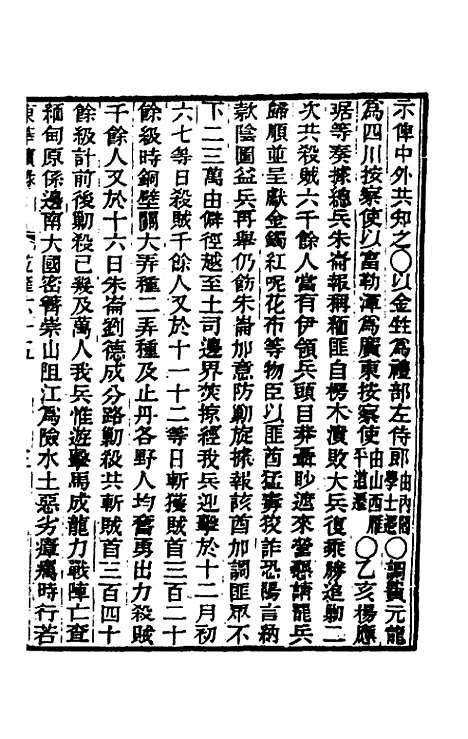 示俾中外共知之○以金甡爲禮部左侍郎由內閣學士遷○調黃元龍
爲四川按察使以富勒渾爲廣東按察使由山西雁平道遷○乙亥楊應
琚等奏據總兵朱崙報稱緬匪自楞木潰敗大兵復乘勝進勦二
次共殺賊六千餘人當有伊領兵頭目莽聶眇遮來營懇請罷兵
歸順並呈獻金鐲紅呢花布等物臣以匪酋猛毒狡詐恐陽言納
款陰圖益兵再舉仍飭朱崙加意防勦旋據報該酋加調匪眾不
下二三萬由僻徑越至土司邊界焚掠經我兵迎擊於十二月初
六七等日殺賊千餘人又於十一十二等日斬獲賊首三百二十
餘級時銅壁關大弄種二弄種及止丹各野人均奮勇出力殺賊
千餘人又於十六日朱崙劉德成分路勦殺共斬賊首三百四十
餘級計前後勦殺已幾及萬人我兵惟遊擊馬成龍力戰陣亡查
緬甸原係邊南大國密箐崇山阻江爲險水土惡劣瘴癘時行若
東華續錄